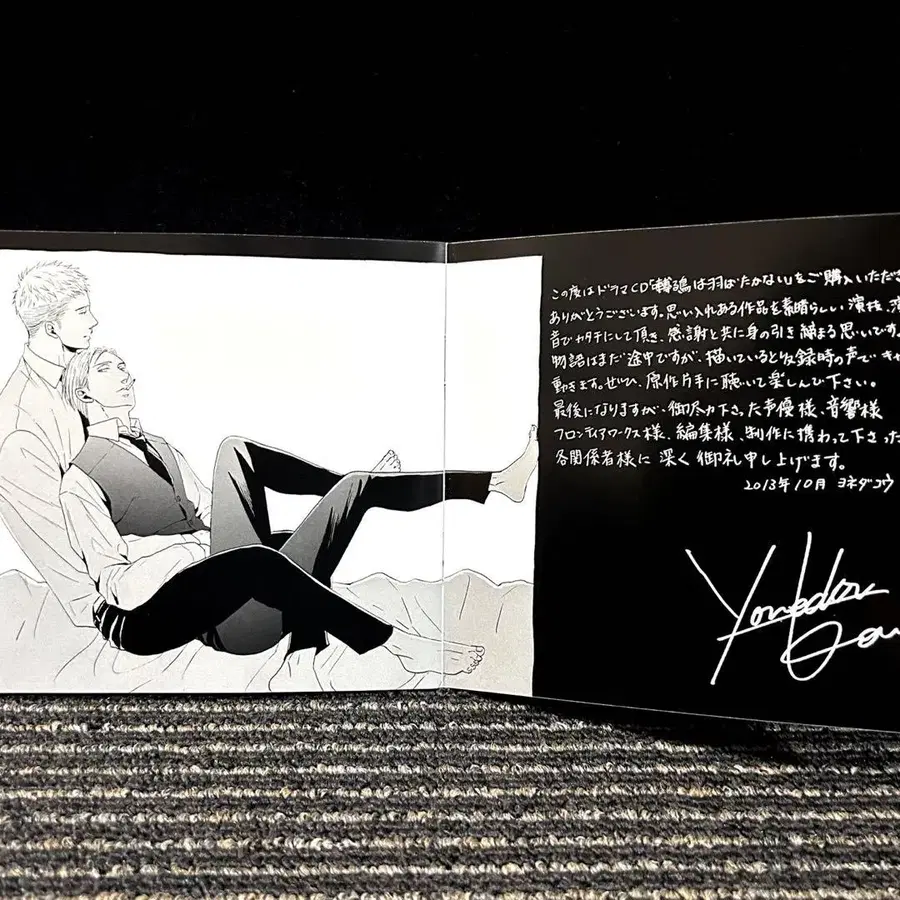 この度はドラマCD「囀る鳥は羽ばたかない」をご購入いただき
ありがとうございます。思い入れある作品を素晴らしい演技、
音でカタチにして頂き、感謝と共に身の引き締まる思いです。
物語はまだ途中ですが、描いていると収録時の声でキャ
動きます。ぜひ、原作片手に聴いて楽しんで下さい。
最後になりますが、御尽力下さった声優様、音響様
フロンティアワークス様、編集様、制作に携わって下さった
各関係者様に深く御礼申し上げます。
2013年10月 ヨネダコウ
Yoneda Kou